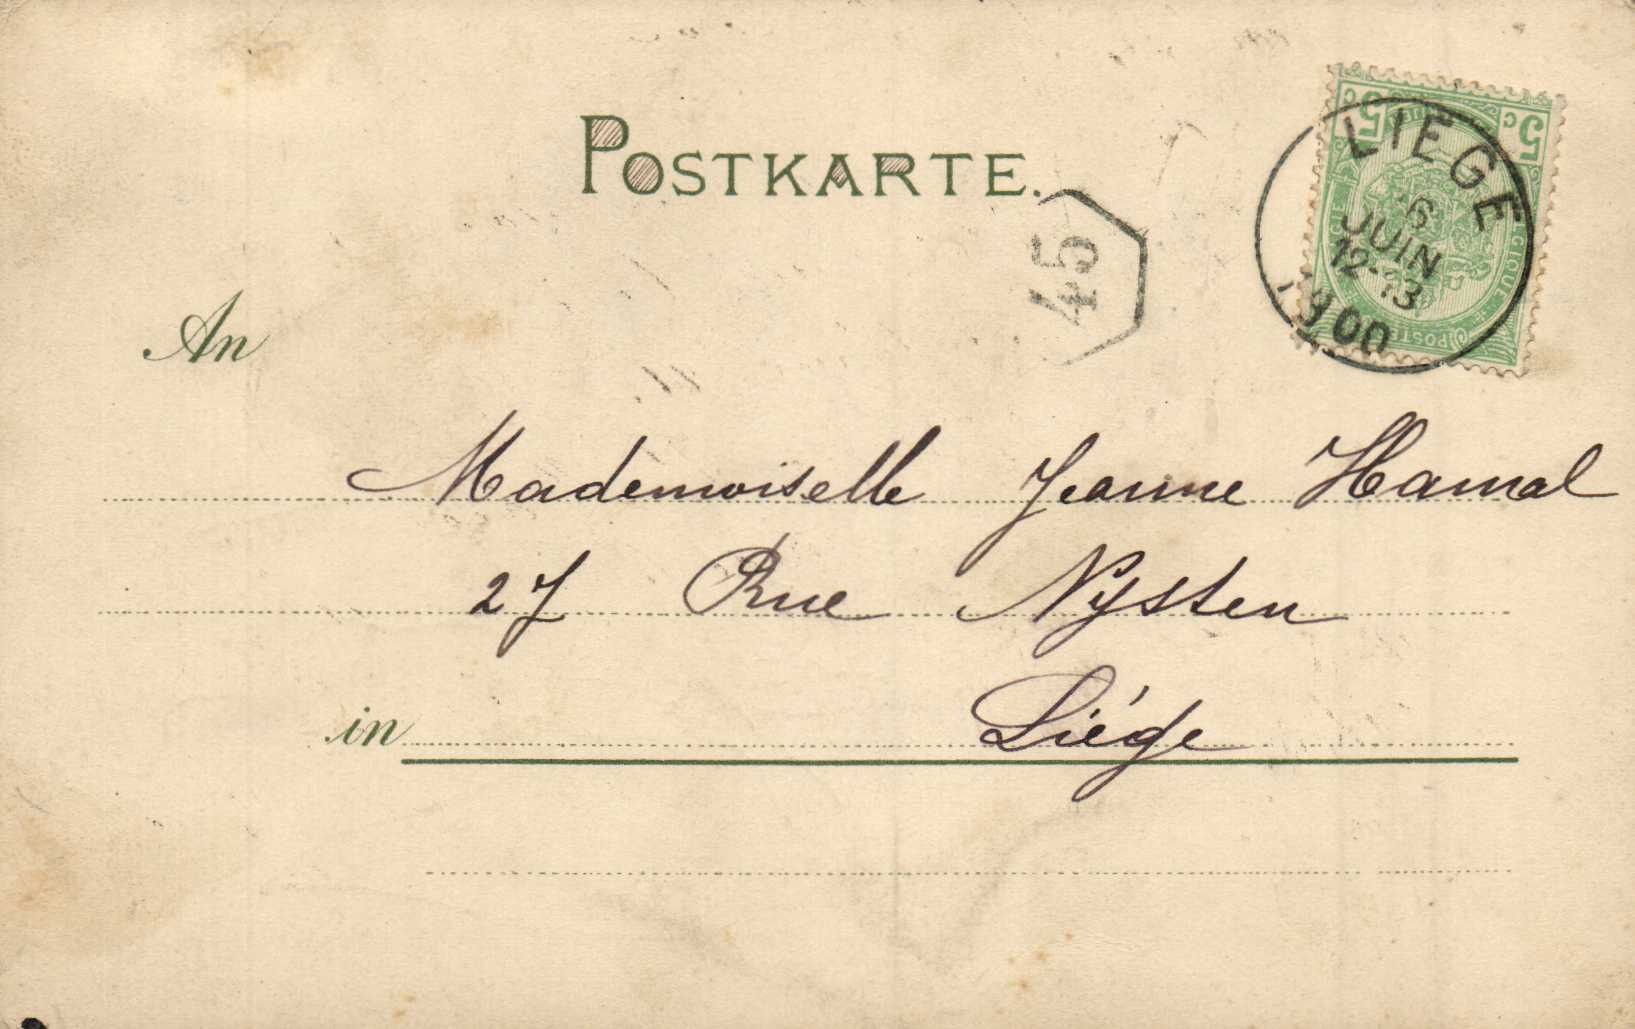 POSTKARTE.
45
5 c 5 c
LIÉGE
6
JUIN
12-13
1900
An
Mademoiselle Jeanne Hamal
27 Rue Nysten
in Liége